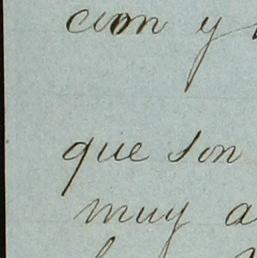 cion y
que son
muy a